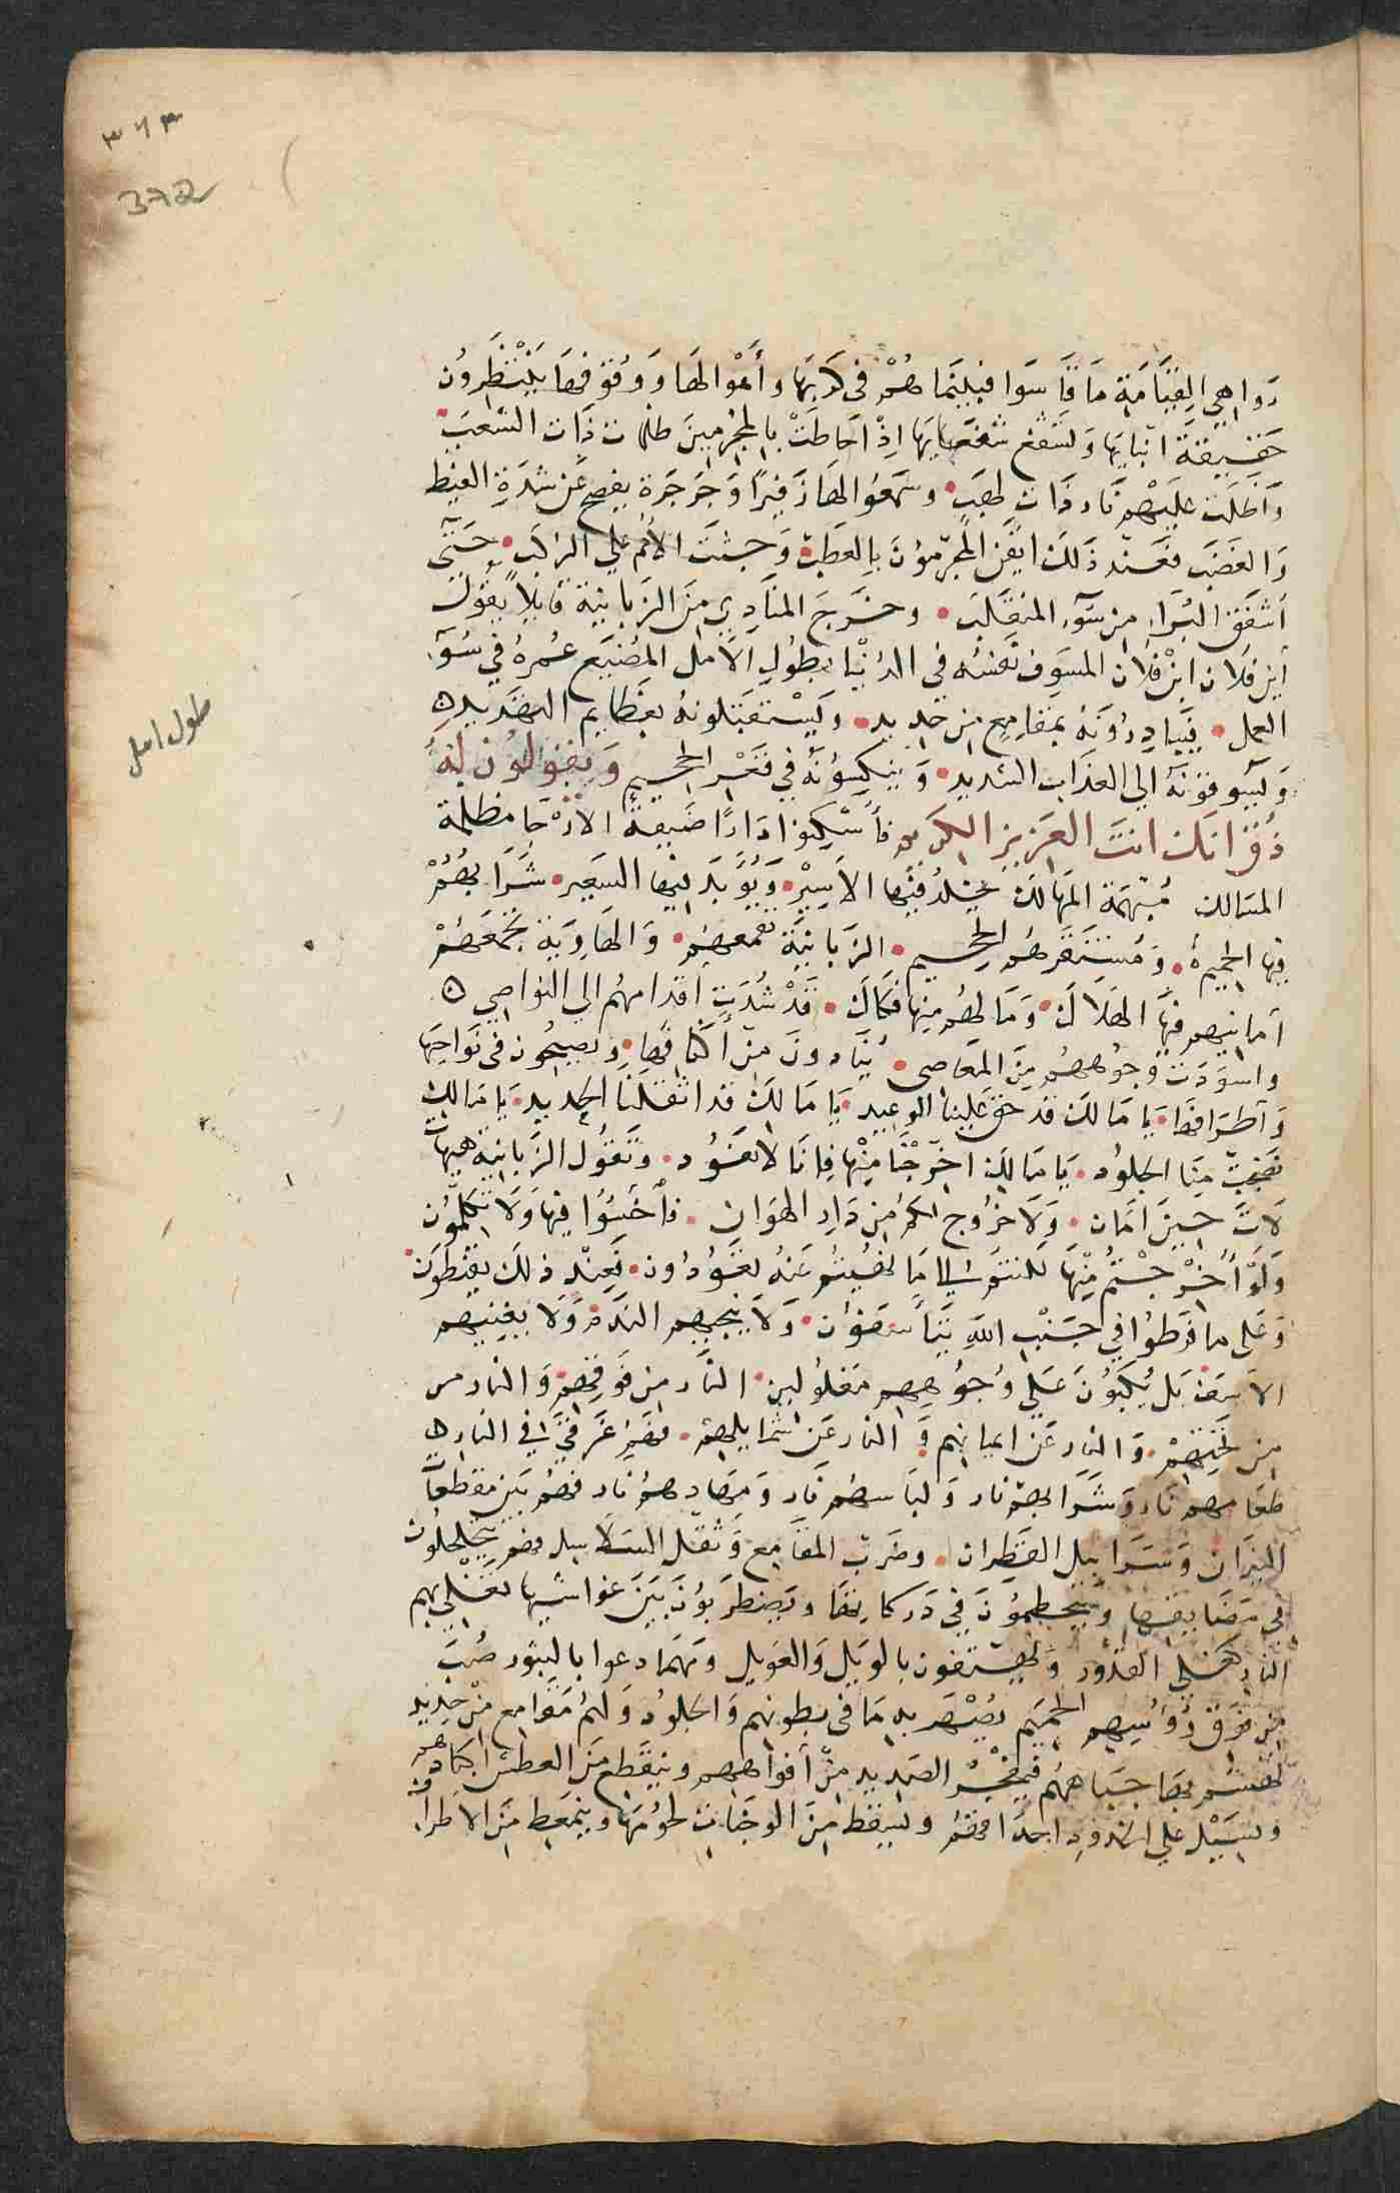 ٣٦٣
372
دواهي القيامة ما قاسوا فبينما هُمْ في كربها وأهْوالها ووقوفها يَنْتَظِرون
حقيقة انبايها وتشفع شفعايها اِذْ احَاطَتْ بالمجرمين ظلمات ذات الشعب
وَاَظلت عليهم نار ذات لهب وسمعُوا لها زفيرًا وَجَرجَرة يفصح عن شدة الغيظ
وَالغضب فعند ذلك ايقن المجرمون بالعطب وَجثت الأمم علي الركب حتي
أشفق البُرَاء من سوء المنقلب وخرج المنادي من الزبانية قايلاً يقول
أين فلان ابن فلان المسوف نفسُه في الدنيا بطُول الأمل المُضيع عمره في سُوء
العمل فيبادرُونَه بمقامع من حديد ويستقبلونه بعظايم التهديد
وَيسوقونه الي العذاب الشديد وَينكسونه في قعر الجحيم ويقولون له
ذُق انك انتَ العزيز الكريم فأسْكنوا دارًا ضيقة الأرْجَا مظلمة
المسالك مُبْهمة المهالك يخلد فيها الأسير وَيُوبد فيها السعير شَرابهُمْ
فيها الحميم وَمستقرهُم الجحيم الزبانية تقمعهم وَالهاوية تجمعهُمْ
أمانيهم فيها الهلاك وَمَا لهم منها فكاك قَدْ شُدَت اقدامهُم الي النواصي
واسودت وجُوههُم من المعاصي يُنادون من أكنافها ويصيحُون في نواحيها
وَأطرافها يا مالك قد حق علينا الوعيد يا مالك قد اثقلنا الحديد يا مالك
نضجت منا الجلود يا مالك اخرجْنا منْها فإنا لا نعُود وَتَقُول الزبانية هيهات
لات حين امان وَلا خرُوج لكم من دَارِ الهوان فأخسَؤُا فيها وَلا تكلمُون
وَلوْ أُخْرجْتُم مِنْها لكنتم إلي ما نهيتم عنه تعُودُون فعند ذلك يقنطون
وَعلى ما فرطوا في جَنْب الله يتأسفون وَلا ينجيهم الندم وَلا يغنيهم
الاسف بَل يُكبُون عَلي وُجُوههم مغلولين النار من فَوقهم وَالنار من
من تحتهمْ وَالنار عن ايمانهم وَالنار عن شمايلهم فهم غرقي في النار
طعامهم نار وَشرابهم نار وَلباسهم نار وَمهادهم نار فهُم بين مقطعات
النيران وَسرابيل القطران وضرب المقامع وَثقل السلاسل فهم يتجلجلون
في مضايقها ويتحطمُون في دركاتها وَيضطربون بين غواشيها تغلي بهم
النار كغلي القدُور وَيهتفون بالويل وَالعويل ومهما دعوا بالثبور صُبَ
من فوق رؤسهم الحميم يُصْهر به ما في بطونهم وَالجلود وَلهم مقامع من حديد
تهشم بها جباههُم فيتفجر الصديد من أفواههم وينقطع من العطش اكبادهم
وتسيل علي الخدود احداقهُم ويسقط من الوجنات لحُومُها وَيتمعط من الأطراف
طول امل